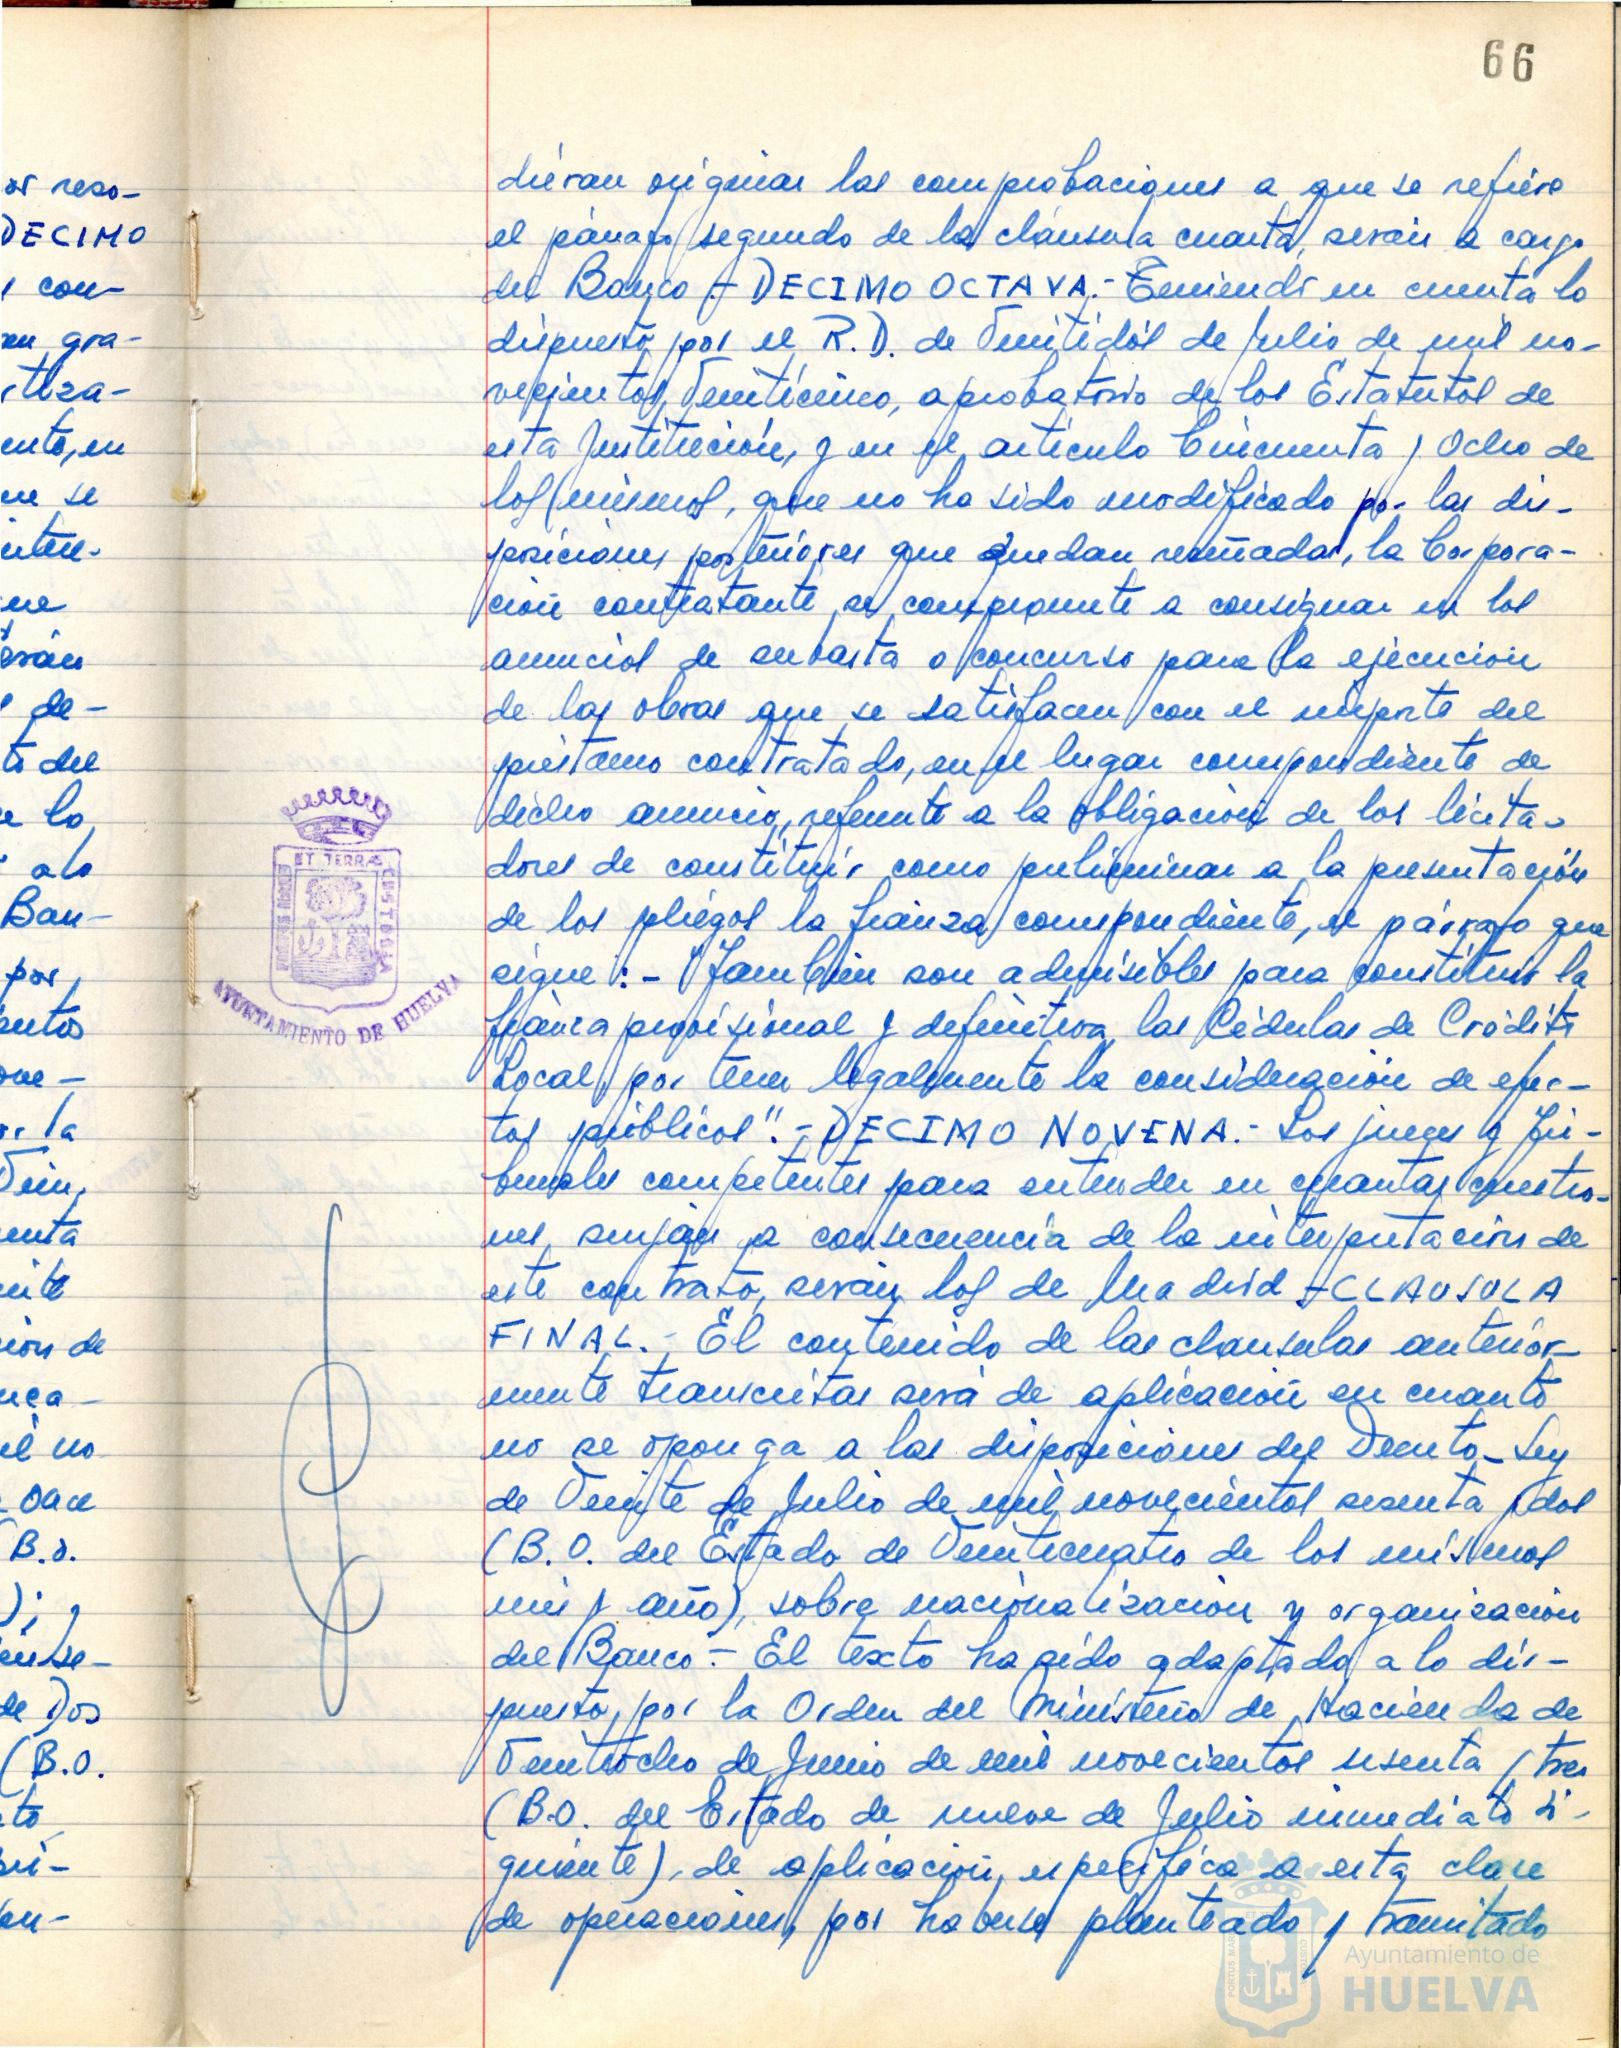 66
or reso-
DECIMO
con-
gra-
tiza-
ento, en
se
erán
de-
to del
lo
a lo
Ban-
por
or la
enta
ión de
no
(B.O.
);
de Dos
(B.O.
dieran originar las comprobaciones a que se refiere
el párrafo segundo de la cláusula cuarta, serán a cargo
del Banco.- DECIMO OCTAVA.- Teniendo en cuenta lo
dispuesto por el R.D. de Veintidós de Julio de mil no-
vecientos Veinticinco, aprobatorio de los Estatutos de
esta Institución, y en el artículo Cincuenta y Ocho de
los mismos, que no ha sido modificado por las dis-
posiciones posteriores que quedan reseñadas, la Corpora-
ción contratante se compromete a consignar en los
anuncios de subasta o concurso para la ejecución
de las obras que se satisfacen con el importe del
préstamo contratado, en el lugar correspondiente de
dicho anuncio, referente a la obligación de los licita-
dores de constituir como preliminar a la presentación
de los pliegos la fianza correspondiente, el párrafo que
sigue:- "También son admisibles para constituir la
fianza provisional y definitiva, las Cédulas de Crédito
Local, por tener legalmente la consideración de efec-
tos públicos".- DECIMO NOVENA.- Los jueces y Tri-
bunales competentes para entender en cuantas cuestio-
nes surjan a consecuencia de la interpretación de
este contrato, serán los de Madrid.- CLAUSULA
FINAL.- El contenido de las clausulas anterior-
mente transcritas será de aplicación en cuanto
no se oponga a las disposiciones del Decreto-Ley
de Veinte de Julio de mil novecientos sesenta y dos
(B.O. del Estado de Veinticuatro de los mismos
mes y año), sobre nacionalización y organización
del Banco.- El texto ha sido adaptado a lo dis-
puesto por la Orden del Ministerio de Hacienda de
Veintiocho de Junio de mil novecientos sesenta y tres
(B.O. del Estado de nueve de Julio inmediato si-
guiente), de aplicación específica a esta clase
de operaciones, por haberse planteado y tramitado
PORTUS MARIS ET TERRAE CUSTODIA
AYUNTAMIENTO DE HUELVA
Ayuntamiento de
HUELVA